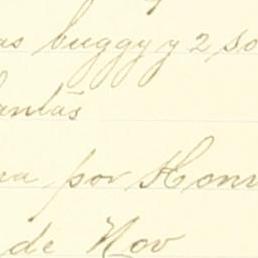 as buggy y 2 so
antas
ra por Hon
de Nov